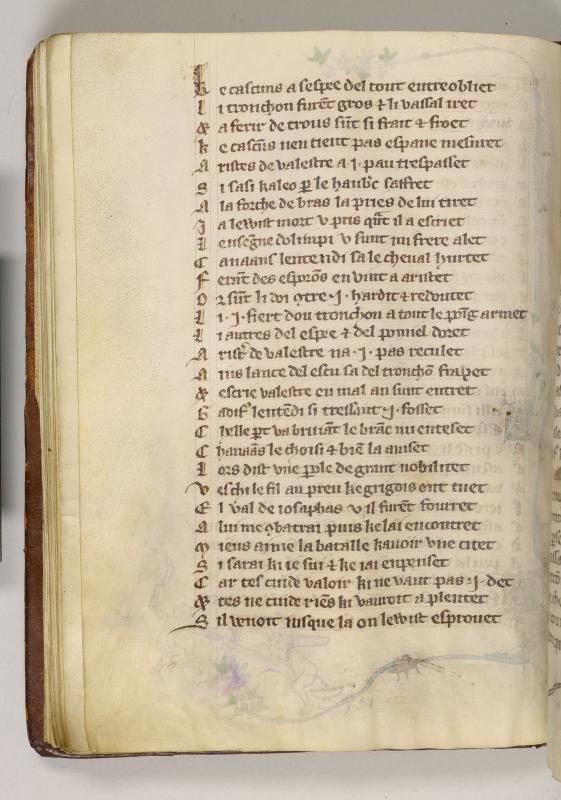 K e cascuns a sespee del tout entreobliet
L i tronchon furēt gros & li vassal iret
& a ferir de trous sūt si frait & froet
k e casc̄us nen tient pas espane mesuret
A ristes de valestre a .j. pau trespasset
S i sasi kaleo p̱ le haub̄c saffret
A la forche de bras la pries de lui tiret
J a lewist mort v pris q̄nt il a escriet
L ensegne dolimpi v sunt mi frere alet
C anaans lentendi sa le cheual hurtet
F erāt des esporōs en vint a aristet
O r sūt li doi 9tre .j. hardit & redoutet
L i .j. fiert dou tronchon a tout le poīg armet
L i autres del espee & del pomel doret
A rist' de valestre na .j. pas reculet
A ins lance del escu sa del tronchō frapet
& escrie valestre en mal an sunt entret
G adif' lentēdi si tressaut .j. fosset
C helle pt va bruiāt le brāc nu enteset
C hanaās le choisi & biē la auiset
L ors dist vne p̱ole de grant nobilitet
V eschi le fil au preu ke grigois ont tuet
E l val de iosaphas v il furēt fourret
A lui me 9batrai puis ke lai encontret
M ieus aime la bataille kauoir vne citet
S i sarai ki ie sui & ke iai enpenset
C ar tes cuide valoir ki ne vaut pas .j. det
& tes ne cuide riēs ki vauroit a plentet
S il venoit iusque la on lewist esprouet